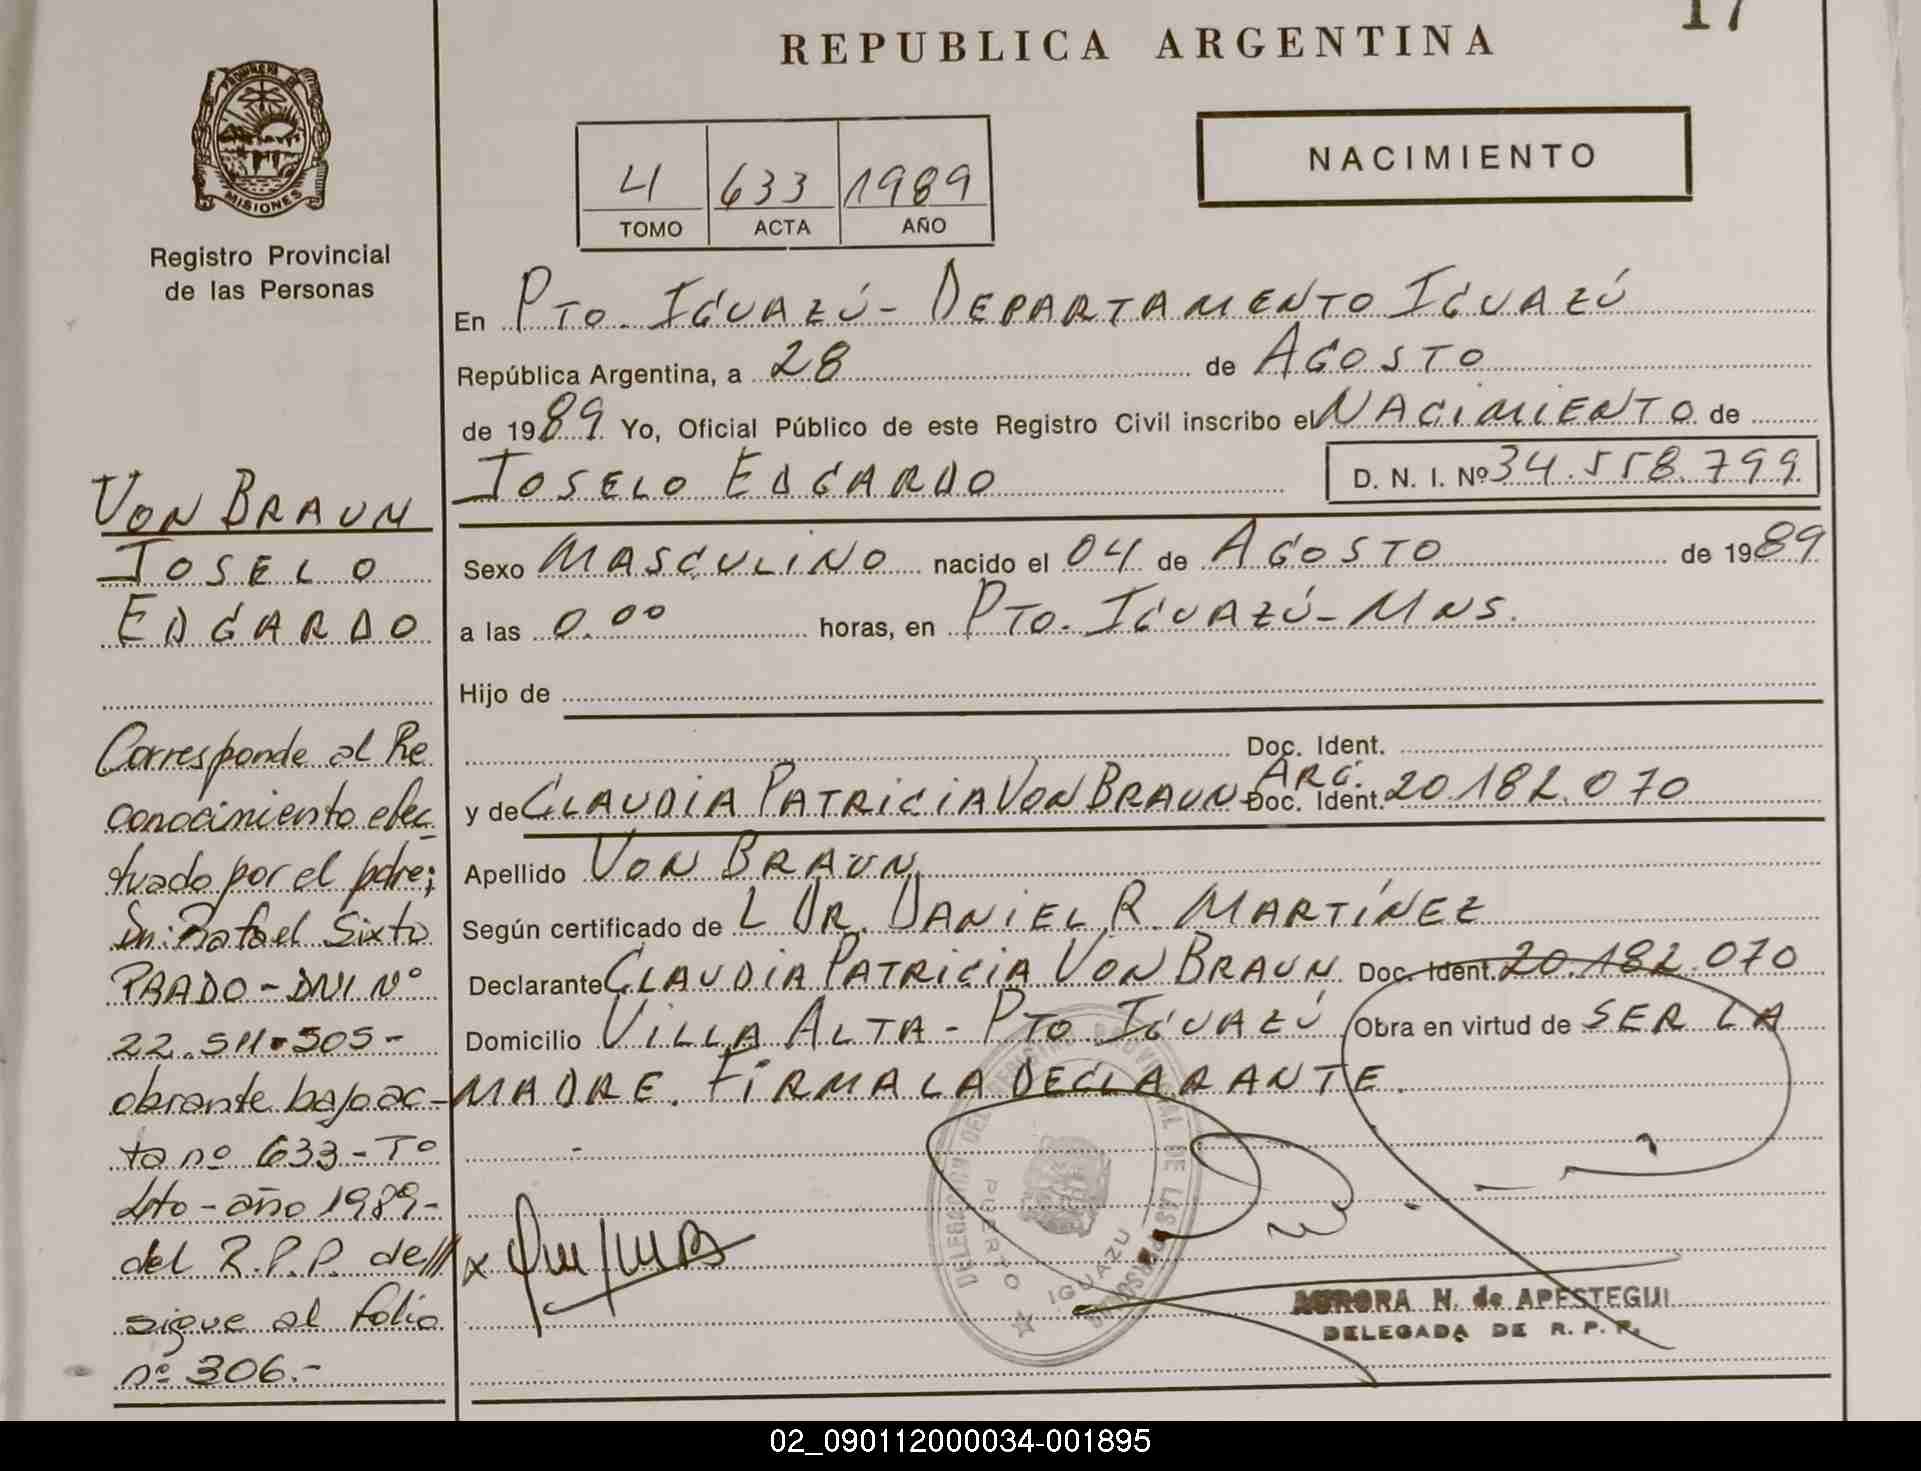 17
REPUBLICA ARGENTINA
PROVINCIA DE
MISIONES
Registro Provincial
de las Personas
4 633 1989
TOMO ACTA AÑO
NACIMIENTO
En PTO. IGUAZÚ - DEPARTAMENTO IGUAZÚ
República Argentina, a 28 de AGOSTO
de 1989 Yo, Oficial Público de este Registro Civil inscribo el NACIMIENTO de
JOSELO EDGARDO D. N. I. Nº 34.558.799
Sexo MASCULINO nacido el 04 de AGOSTO de 1989
a las 0.00 horas, en PTO. IGUAZÚ - MNS.
Hijo de
Doc. Ident.
y de CLAUDIA PATRICIA VON BRAUN - ARG. Doc. Ident. 20.182.070
Apellido VON BRAUN
Según certificado de L DR. DANIEL R. MARTÍNEZ
Declarante CLAUDIA PATRICIA VON BRAUN Doc. Ident. 20.182.070
Domicilio VILLA ALTA - PTO. IGUAZÚ Obra en virtud de SER LA
MADRE. FIRMA LA DECLARANTE.
VON BRAUN
JOSELO
EDGARDO
Corresponde al Re
conocimiento efec
tuado por el pdre;
Dn: Rafael Sixto
PRADO - DNI Nº
22.511.505 -
obrante bajo ac-
ta nº 633 - Tº
4to - año 1989 -
del R.P.P. de//
sigue al folio
nº 306.-
x
DELEGACION DEL REGISTRO PROVINCIAL DE LAS PERSONAS
PUERTO IGUAZU
AURORA N. de APESTEGUI
DELEGADA DE R. P. P.
02_090112000034-001895